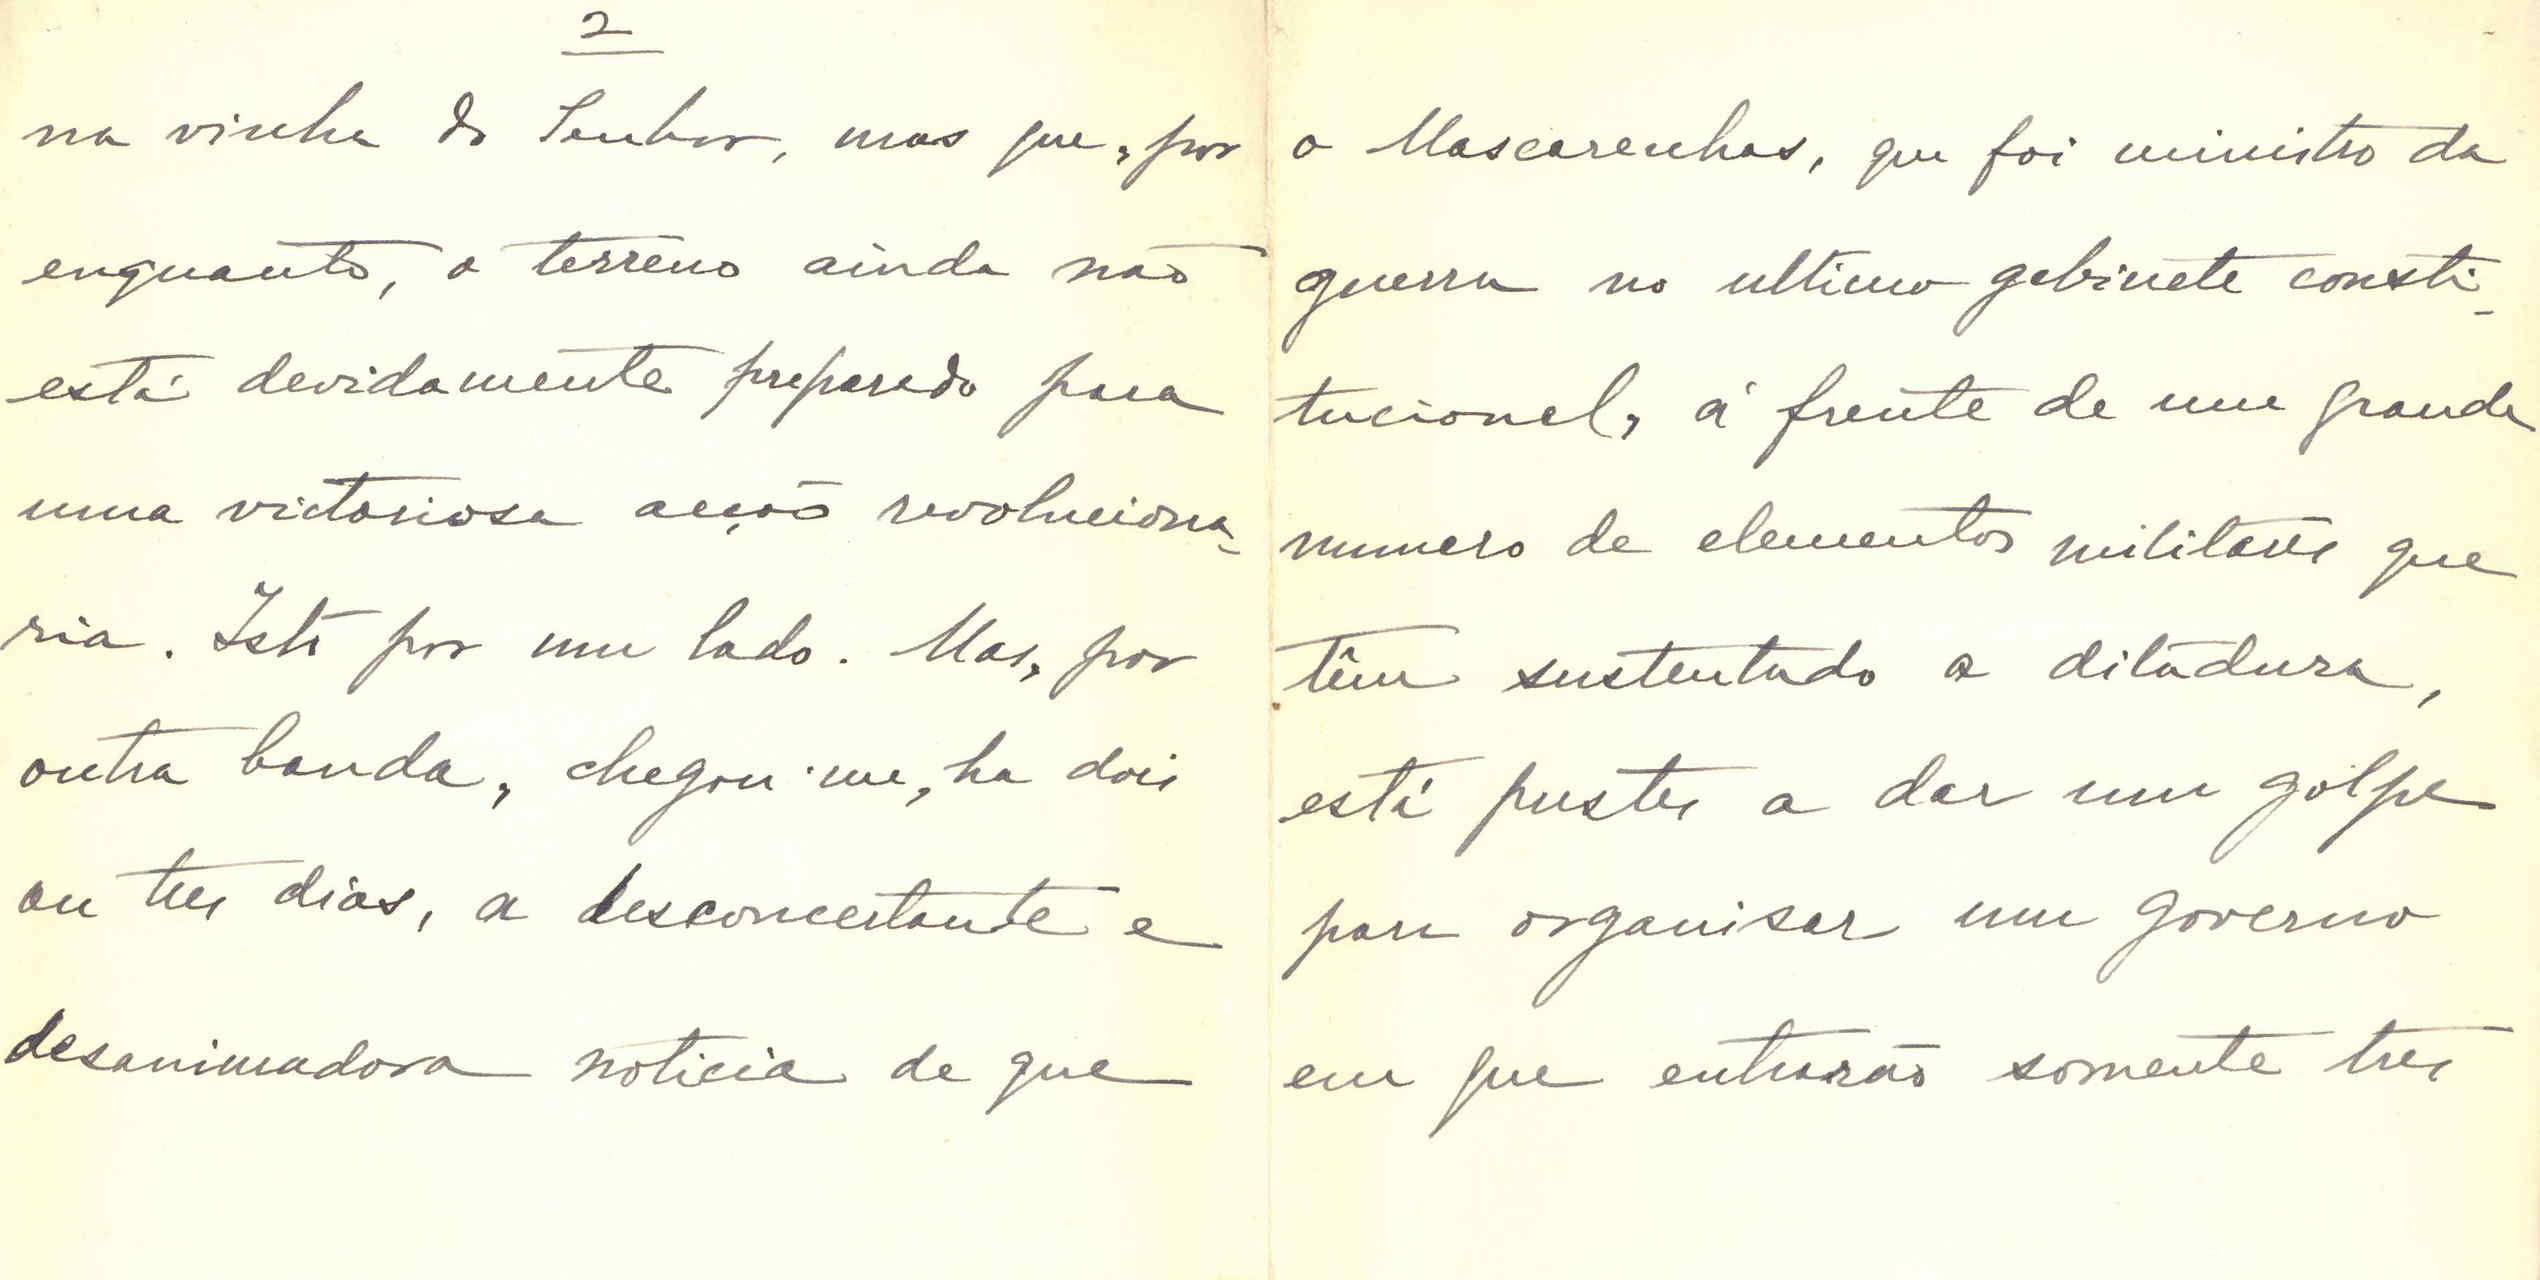 2
na vinha do Senhor, mas que, por
enquanto, o terreno ainda não
está devidamente preparado para
uma victoriosa acção revoluciona-
ria. Isto por um lado. Mas, por
outra banda, chegou-me, ha dois
ou tres dias, a desconcertante e
desanimadora noticia de que
o Mascarenhas, que foi ministro da
guerra no ultimo gabinete consti-
tucional, á frente de um grande
numero de elementos militares que
têm sustentado a ditadura,
está prestes a dar um golpe
para organisar um governo
em que entrarão somente tres